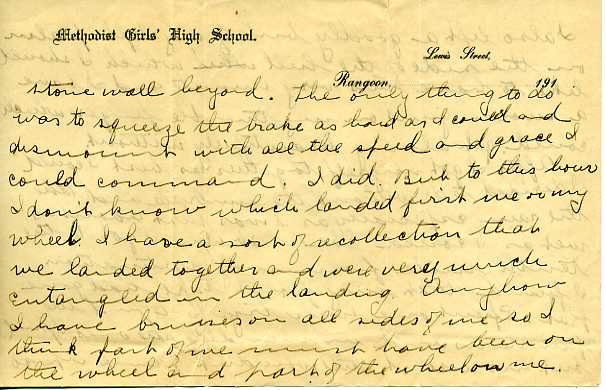 Methodist Girls' High School.
Lewis Street,
Rangoon, 191
stone wall beyond. The only thing to do
was to squeeze the brake as hard as I could and
dismount with all the speed and grace I
could command. I did. But to this hour
I don't know which landed first me or my
wheel. I have a sort of recollection that
we landed together and were very much
entangled in the landing. Anyhow
I have bruises on all sides of me so I
think part of me must have been on
the wheel and part of the wheel on me.